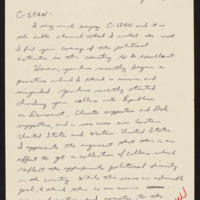 C-SPAN -
I very much enjoy C-SPAN and it is
the cable channel that I watch the most
I find your coverage of the political
activities in the country to be excellent.
However, you have recently begun a
practice which I think is unwise and
misguided. You have recently started
dividing your callers into Republican
or Democrat, Clinton supporters and Dole
supporters, and in some cases Eastern
United States and Western United States.
I appreciate the argument that this is an
effort to get a collection of callers which
reflect the appropriate political diversity
in the country. While this seems an admirable
goal, I think this is an unwise
and counter to the